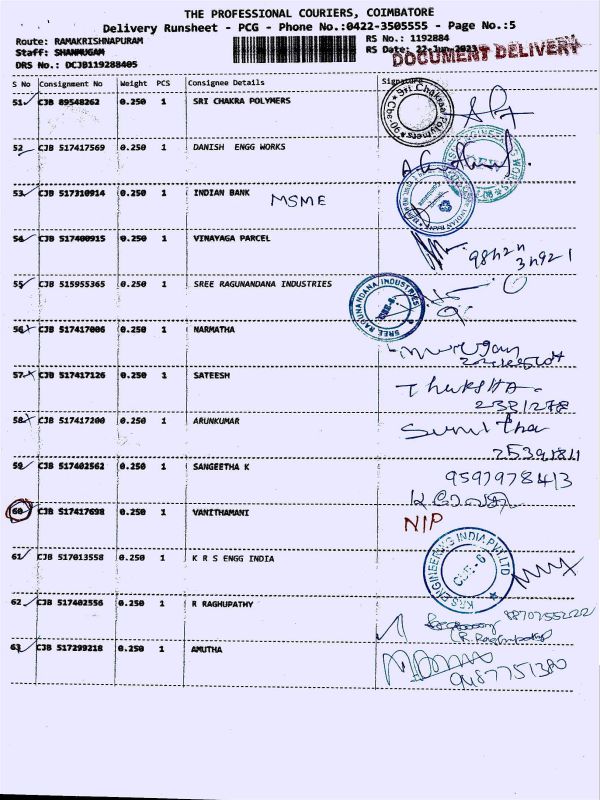 THE PROFESSIONAL COURIERS, COIMBATORE
Delivery Runsheet - PCG - Phone No.:0422-3505555 - Page No.:5
Route: RAMAKRISHNAPURAM RS No.: 1192884
Staff: SHANMUGAM RS Date: 22-Jun-2023
DOCUMENT DELIVERY
DRS No.: DCJB119288405
S No Consignment No Weight PCS Consignee Details Signature
51 CJB 89548262 0.250 1 SRI CHAKRA POLYMERS
52 CJB 517417569 0.250 1 DANISH ENGG WORKS
53 CJB 517310914 0.250 1 INDIAN BANK MSME
54 CJB 517400915 0.250 1 VINAYAGA PARCEL
55 CJB 515955365 0.250 1 SREE RAGUNANDANA INDUSTRIES
SREE RAGUNANDANA INDUSTRIES
56 CJB 517417006 0.250 1 NARMATHA
Murugan
57 CJB 517417126 0.250 1 SATEESH
2381278
58 CJB 517417200 0.250 1 ARUNKUMAR Sunitha
59 CJB 517402562 0.250 1 SANGEETHA K 9597978413
60 CJB 517417698 0.250 1 VANITHAMANI NIP
61 CJB 517013558 0.250 1 K R S ENGG INDIA
KRS ENGINEERING INDIA PVT LTD
CBE-6
62 CJB 517402556 0.250 1 R RAGHUPATHY
63 CJB 517299218 0.250 1 AMUTHA
9487751380